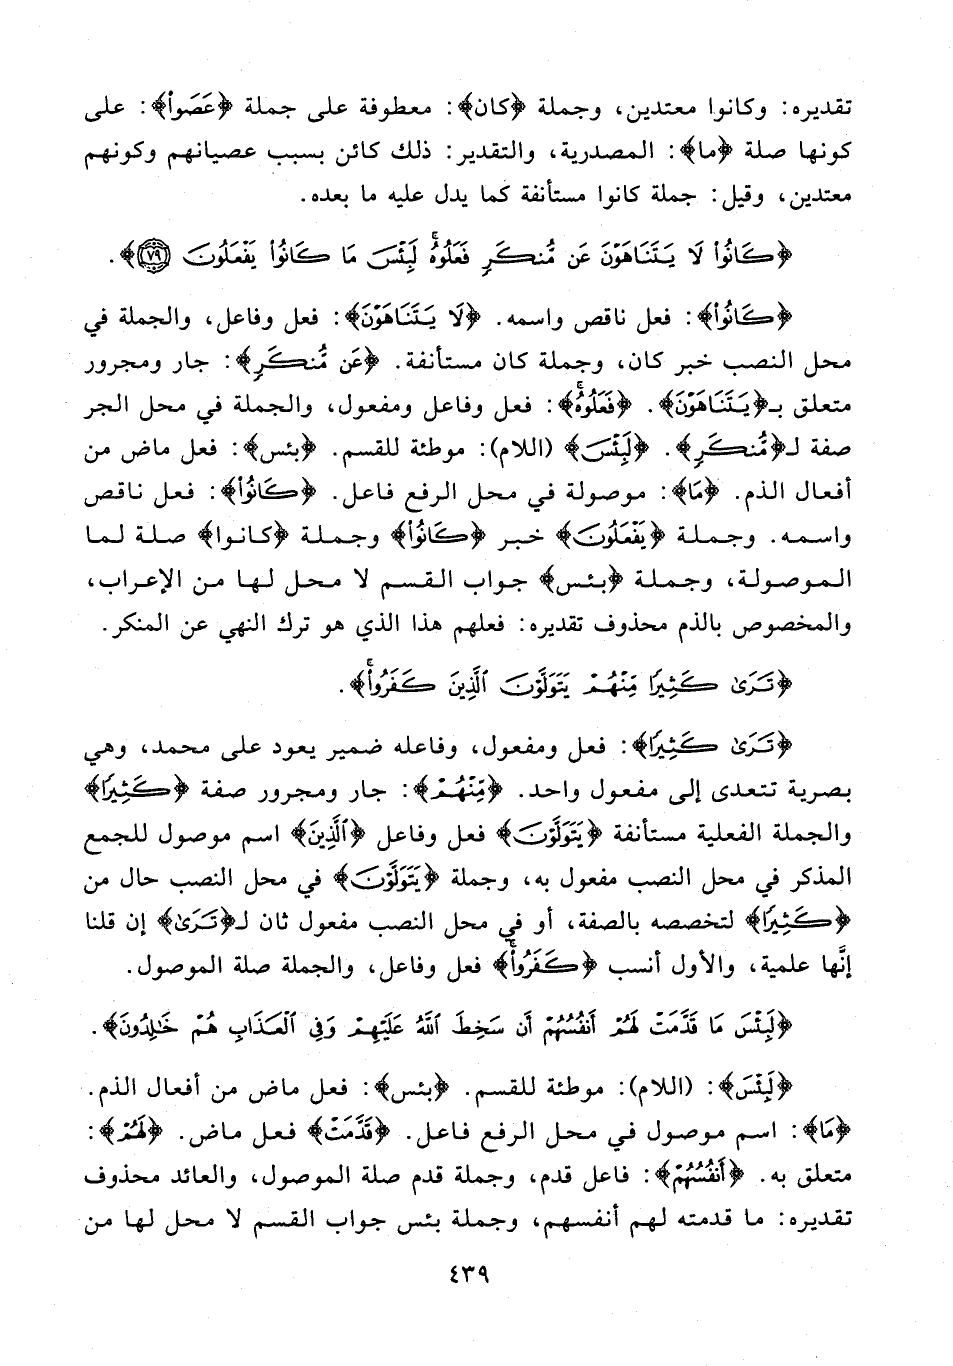 تقديره: وكانوا معتدين، وجملة ﴿كان﴾: معطوفة على جملة ﴿عَصَوا۟﴾: على
كونها صلة ﴿ما﴾: المصدرية، والتقدير: ذلك كائن بسبب عصيانهم وكونهم
معتدين، وقيل: جملة كانوا مستأنفة كما يدل عليه ما بعده.
﴿كَانُوا۟ لَا يَتَنَاهَوْنَ عَن مُّنكَرٍ فَعَلُوهُ ۚ لَبِئْسَ مَا كَانُوا۟ يَفْعَلُونَ ﴿٧٩﴾﴾.
﴿كَانُوا۟﴾: فعل ناقص واسمه. ﴿لَا يَتَنَاهَوْنَ﴾: فعل وفاعل، والجملة في
محل النصب خبر كان، وجملة كان مستأنفة. ﴿عَن مُّنكَرٍ﴾: جار ومجرور
متعلق بـ﴿يَتَنَاهَوْنَ﴾. ﴿فَعَلُوهُ ۚ﴾: فعل وفاعل ومفعول، والجملة في محل الجر
صفة لـ﴿مُّنكَرٍ﴾. ﴿لَبِئْسَ﴾ (اللام): موطئة للقسم. ﴿بئس﴾: فعل ماض من
أفعال الذم. ﴿مَا﴾: موصولة في محل الرفع فاعل. ﴿كَانُوا۟﴾: فعل ناقص
واسمه. وجملة ﴿يَفْعَلُونَ﴾ خبر ﴿كَانُوا۟﴾ وجملة ﴿كانوا﴾ صلة لما
الموصولة، وجملة ﴿بئس﴾ جواب القسم لا محل لها من الإعراب،
والمخصوص بالذم محذوف تقديره: فعلهم هذا الذي هو ترك النهي عن المنكر.
﴿تَرَىٰ كَثِيرًا مِّنْهُمْ يَتَوَلَّوْنَ ٱلَّذِينَ كَفَرُوا۟ ۚ﴾.
﴿تَرَىٰ كَثِيرًا﴾: فعل ومفعول، وفاعله ضمير يعود على محمد، وهي
بصرية تتعدى إلى مفعول واحد. ﴿مِّنْهُمْ﴾: جار ومجرور صفة ﴿كَثِيرًا﴾
والجملة الفعلية مستأنفة ﴿يَتَوَلَّوْنَ﴾ فعل وفاعل ﴿ٱلَّذِينَ﴾ اسم موصول للجمع
المذكر في محل النصب مفعول به، وجملة ﴿يَتَوَلَّوْنَ﴾ في محل النصب حال من
﴿كَثِيرًا﴾ لتخصصه بالصفة، أو في محل النصب مفعول ثان لـ﴿تَرَىٰ﴾ إن قلنا
إنَّها علمية، والأول أنسب ﴿كَفَرُوا۟ ۚ﴾ فعل وفاعل، والجملة صلة الموصول.
﴿لَبِئْسَ مَا قَدَّمَتْ لَهُمْ أَنفُسُهُمْ أَن سَخِطَ ٱللَّهُ عَلَيْهِمْ وَفِى ٱلْعَذَابِ هُمْ خَٰلِدُونَ﴾.
﴿لَبِئْسَ﴾: (اللام): موطئة للقسم. ﴿بئس﴾: فعل ماض من أفعال الذم.
﴿مَا﴾: اسم موصول في محل الرفع فاعل. ﴿قَدَّمَتْ﴾ فعل ماض. ﴿لَهُمْ﴾:
متعلق به. ﴿أَنفُسُهُمْ﴾: فاعل قدم، وجملة قدم صلة الموصول، والعائد محذوف
تقديره: ما قدمته لهم أنفسهم، وجملة بئس جواب القسم لا محل لها من
٤٣٩